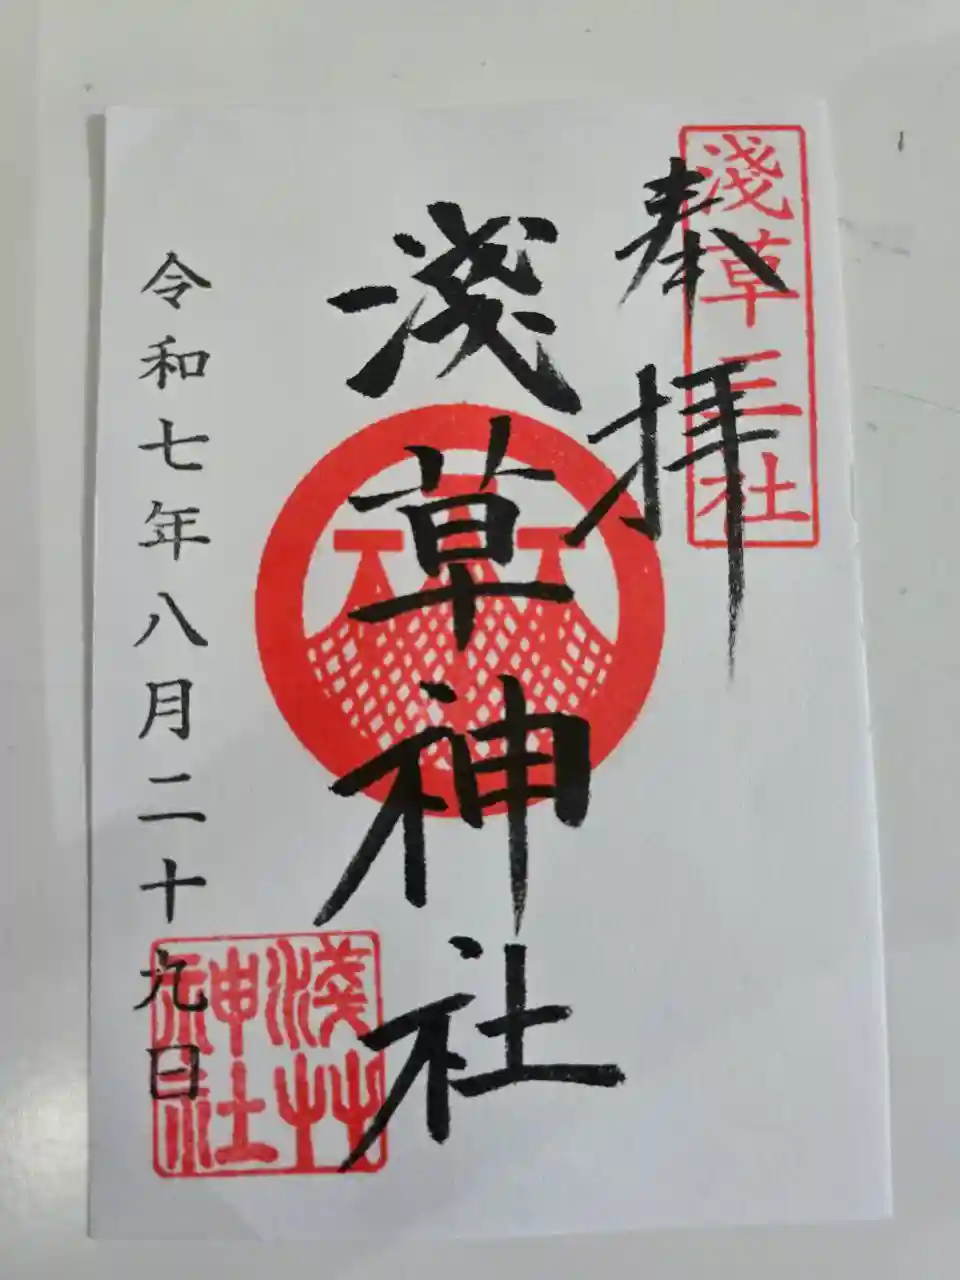 奉拝
淺草三社
淺草神社
令和七年八月二十九日
淺艸
神社